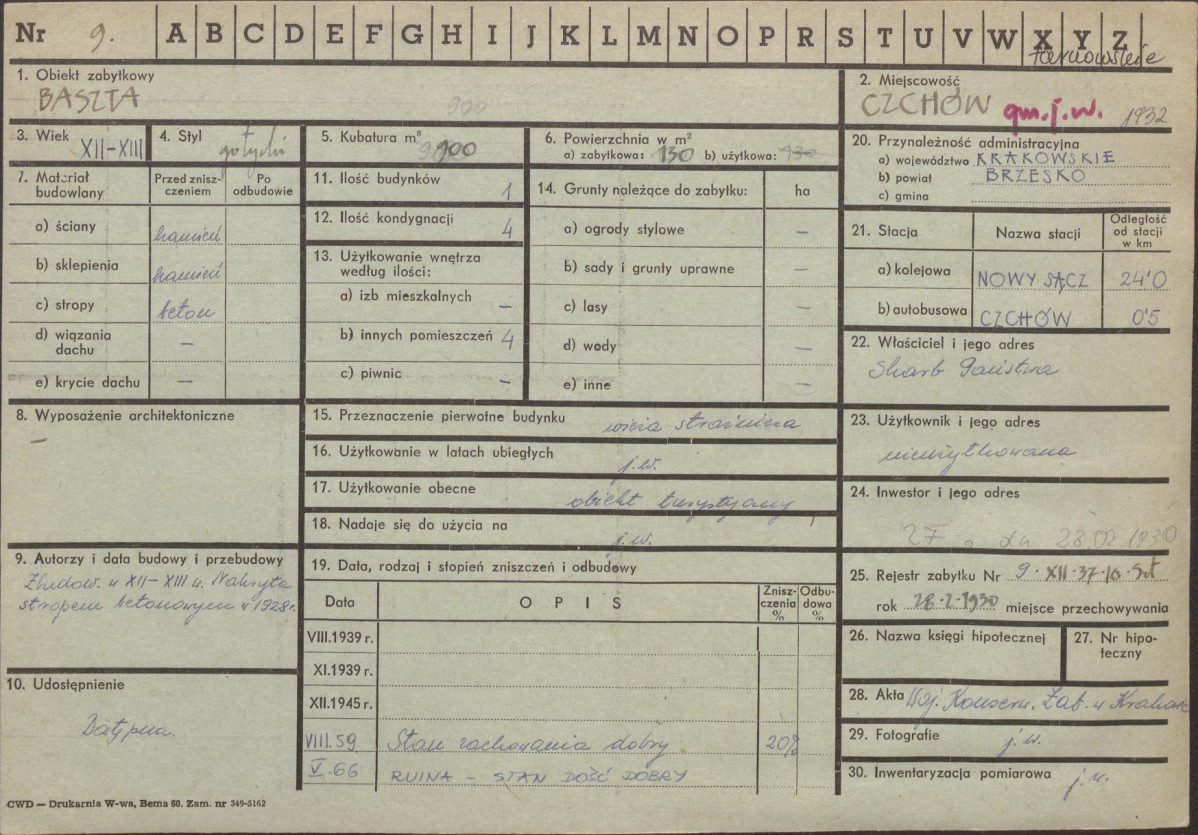 Nr 9. A B C D E F G H I J K L M N O P R S T U V W X Y Z
tarnowskie
1. Obiekt zabytkowy
BASZTA
900
2. Miejscowość
CZCHÓW gm. j. w. 1932
3. Wiek XII–XIII
4. Styl gotycki
5. Kubatura m³ 900
6. Powierzchnia w m²
a) zabytkowa: 130 b) użytkowa: 130
7. Materiał budowlany
Przed zniszczeniem
Po odbudowie
a) ściany kamień
b) sklepienia kamień
c) stropy beton
d) wiązania dachu –
e) krycie dachu –
8. Wyposażenie architektoniczne
–
9. Autorzy i data budowy i przebudowy
Zbudow. w XII–XIII w. Nakryta
stropem betonowym w 1928 r.
10. Udostępnienie
Dostępna.
11. Ilość budynków 1
12. Ilość kondygnacji 4
13. Użytkowanie wnętrza
według ilości:
a) izb mieszkalnych –
b) innych pomieszczeń 4
c) piwnic –
14. Grunty należące do zabytku: ha
a) ogrody stylowe –
b) sady i grunty uprawne –
c) lasy –
d) wody –
e) inne –
15. Przeznaczenie pierwotne budynku wieża strażnicza
16. Użytkowanie w latach ubiegłych j. w.
17. Użytkowanie obecne obiekt turystyczny
18. Nadaje się do użycia na j. w.
19. Data, rodzaj i stopień zniszczeń i odbudowy
Data OPIS Zniszczenia % Odbudowa %
VIII.1939 r.
XI.1939 r.
XII.1945 r.
VIII.59 Stan zachowania dobry 20%
V.66 RUINA – STAN DOŚĆ DOBRY
20. Przynależność administracyjna
a) województwo KRAKOWSKIE
b) powiat BRZESKO
c) gmina
21. Stacja Nazwa stacji Odległość od stacji w km
a) kolejowa NOWY SĄCZ 24'0
b) autobusowa CZCHÓW 0'5
22. Właściciel i jego adres
Skarb Państwa
23. Użytkownik i jego adres
nieużytkowana
24. Inwestor i jego adres
28.02.1930
25. Rejestr zabytku Nr 9·XII·37·10·Szt
rok 28·2·1930 miejsce przechowywania
26. Nazwa księgi hipotecznej
27. Nr hipoteczny
28. Akta Woj. Konserw. Zab. w Krakowie
29. Fotografie j. w.
30. Inwentaryzacja pomiarowa j. w.
CWD — Drukarnia W-wa, Bema 60. Zam. nr 349-5162